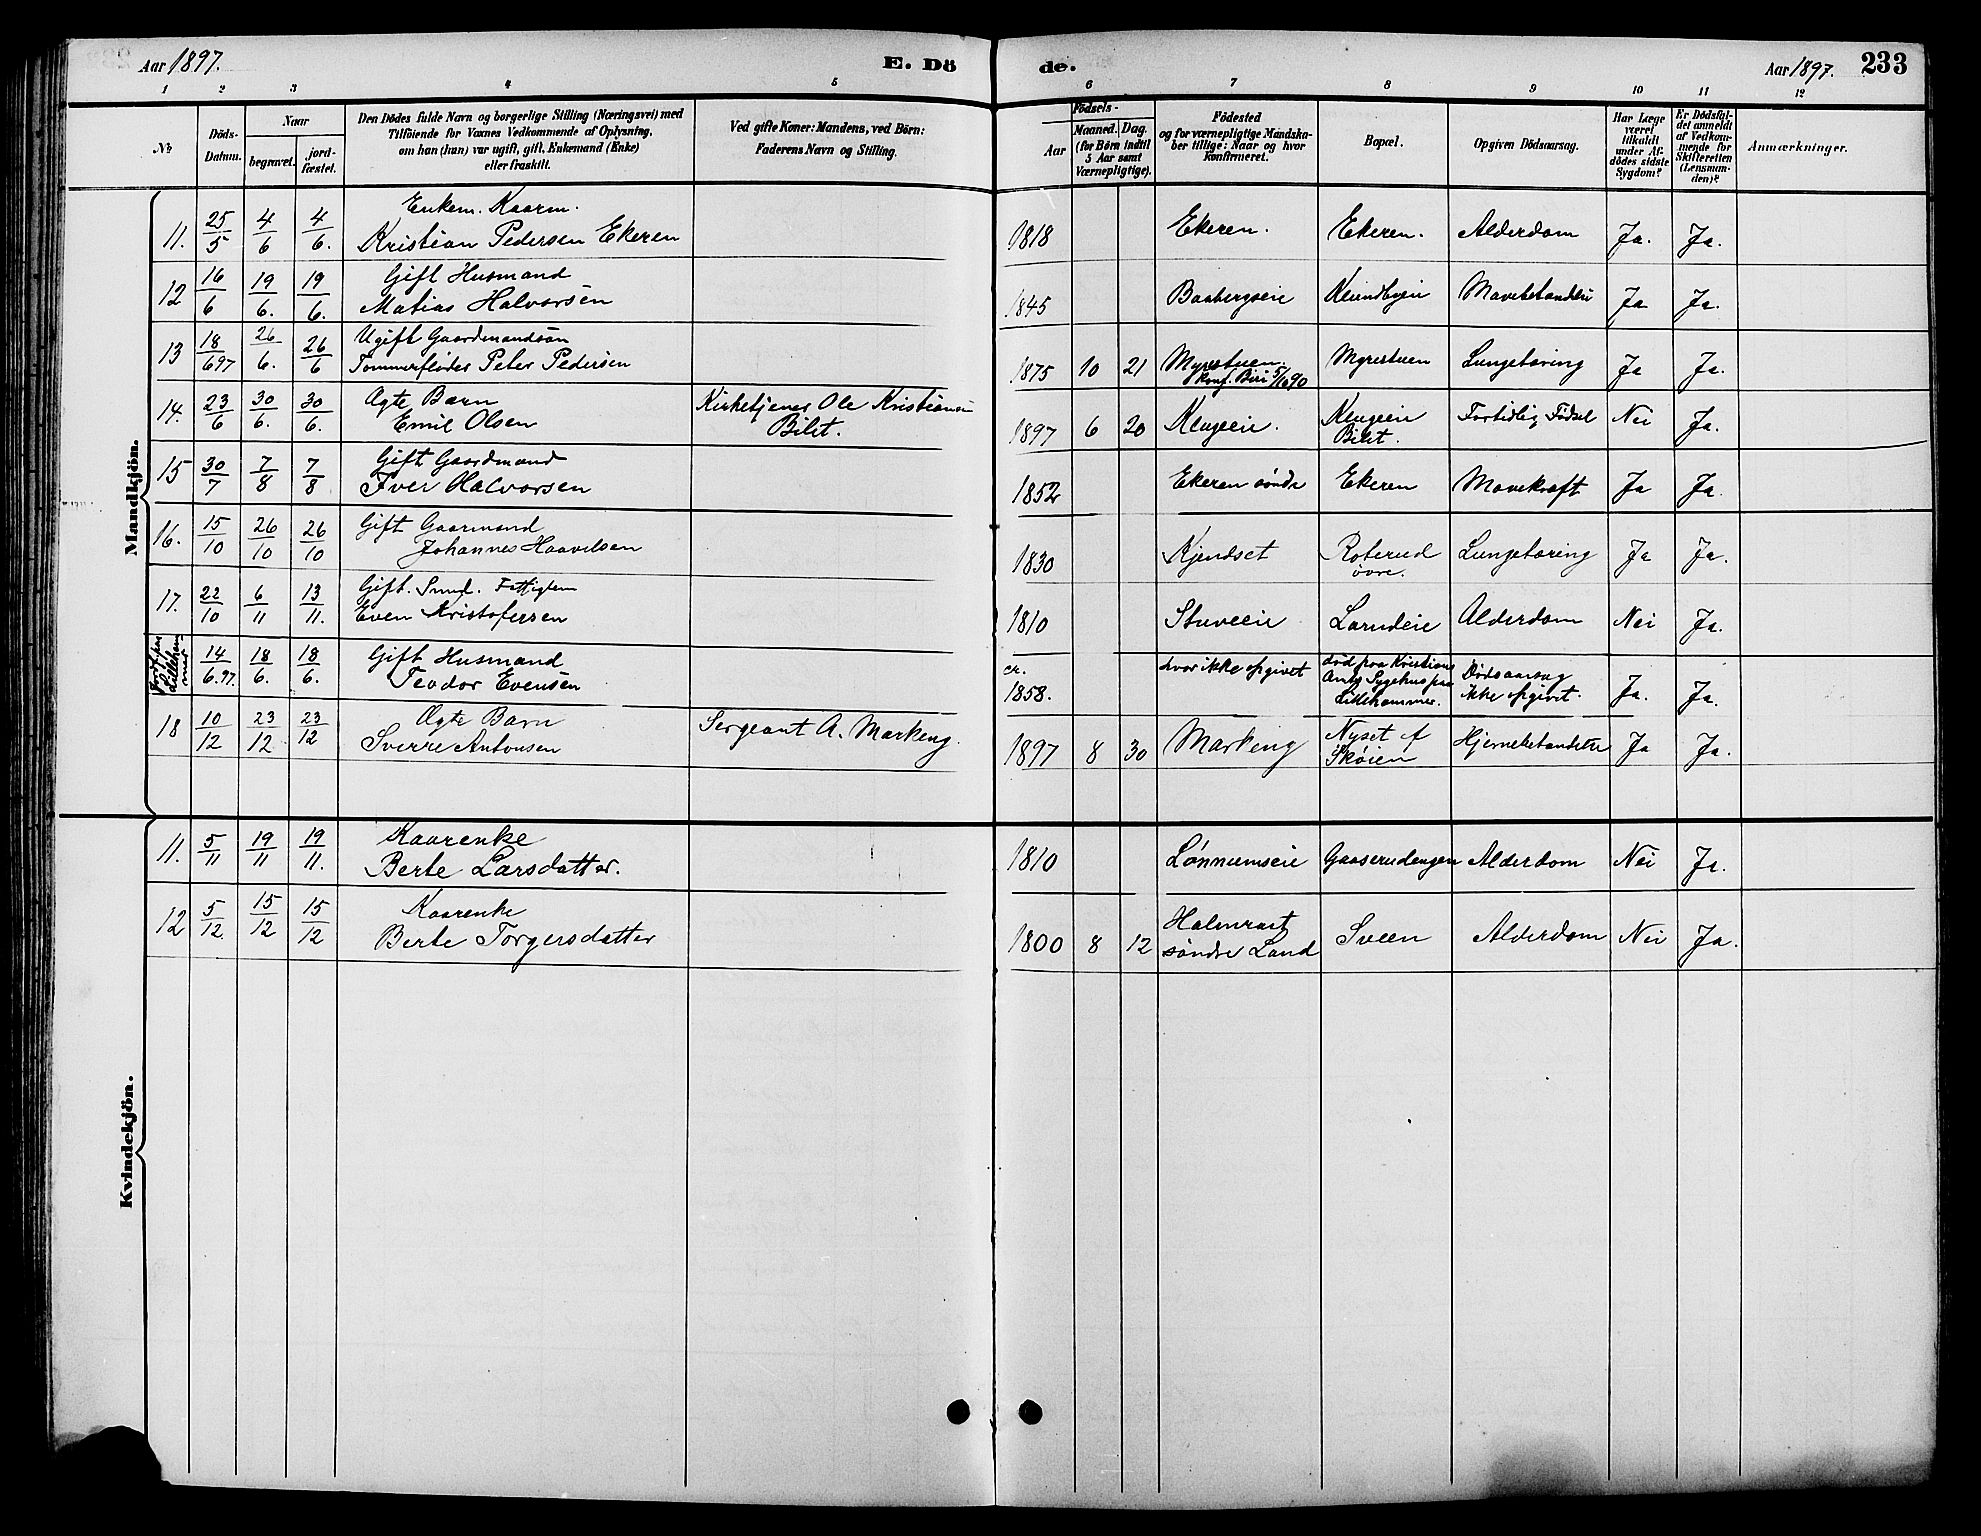 Aar 1897.
E. Dö
de.
Aar 1897.
233
1 2 3 4 5 6 7 8 9 10 11 12
No
Döds-Datum.
Naar
begravet.
jord-fæstet.
Den Dödes fulde Navn og borgerlige Stilling (Næringsvei) med
Tilföiende for Voxnes Vedkommende af Oplysning,
om han (hun) var ugift, gift, Enkemand (Enke)
eller fraskilt.
Ved gifte Koner: Mandens, ved Börn:
Faderens Navn og Stilling.
Födsels-
Aar
Maaned. Dag.
(for Börn indtil
5 Aar samt
Værnepligtige).
Födested
og for værnepligtige Mandska-
ber tillige: Naar og hvor
konfirmeret.
Bopæl.
Opgiven Dödsaarsag.
Har Læge
været
tilkaldt
under Af-
dödes sidste
Sygdom?
Er Dödsfal-
det anmeldt
af Vedkom-
mende for
Skifteretten
(Lensman-
den)?
Anmærkninger.
Mandkjön.
11. 25/5 4/6 4/6. Enkem. Kaarm.
Kristian Pedersen Ekeren 1818 Ekeren. Ekeren. Alderdom Ja. Ja.
12 16/6 19/6. 19/6. Gift Husmand
Matias Halvorsen 1845 Baabergseie Mavebetændelse Ja Ja.
13 18/6 97 26/6. 26/6 Ugift Gaardmandsøn
Tømmerfløder Peter Pedersen 1875 10 21 Myrestuen.
konf. Biri 5/10 90 Myrestuen Lungetæring Ja Ja.
14. 23/6 30/6. 30/6. Ægte Barn
Emil Olsen Kirketjener Ole Kristiansen
Bilet. 1897 6 20 Klugeeie. Klugeeie
Bilet. Fortidlig Fødsel Nei Ja.
15 30/7 7/8 7/8 Gift Gaardmand
Iver Halvorsen 1852 Ekeren søndr Ekeren Mavekræft Ja Ja.
16. 15/10 26/10 26/10 Gift Gaarmand
Johannes Haavelsen 1830 Kjendset Roterud
øvre. Lungetæring Ja Ja.
17. 22/10 6/11 13/11. Gift. Smed. Fattiglem
Even Kristofersen 1810 Stuveeie Larudeie Alderdom Nei Ja.
Jordf. paa
Lilleham-
mer 14/6.97. 18/6. 18/6. Gift Husmand
Teodor Evensen ca.
1858. hvor ikke opgivet død paa Kristians
Amts Sygehus paa
Lillehammer. Dødsaarsag
ikke opgivet. Ja. Ja.
18 10/12 23/12 23/12 Ægte Barn
Sverre Antonsen Sergeant A. Markeng. 1897 8 30 Markeng Nyset af
Skøien Hjernebetændelse Ja Ja.
Kvindekjön.
11. 5/11 19/11 19/11. Kaarenke
Berte Larsdatter. 1810 Lønnumseie Gaaserudengen Alderdom Nei Ja.
12 5/12. 15/12 15/12 Kaarenke
Berte Torgersdatter 1800 8 12 Halmrast
søndre Land Sveen Alderdom Nei Ja.